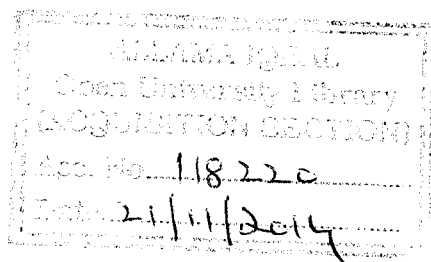 ALLAMA IQBAL
Open University Library
(ACQUISITION SECTION)
Acc. No. 118220
Date 21/11/2014